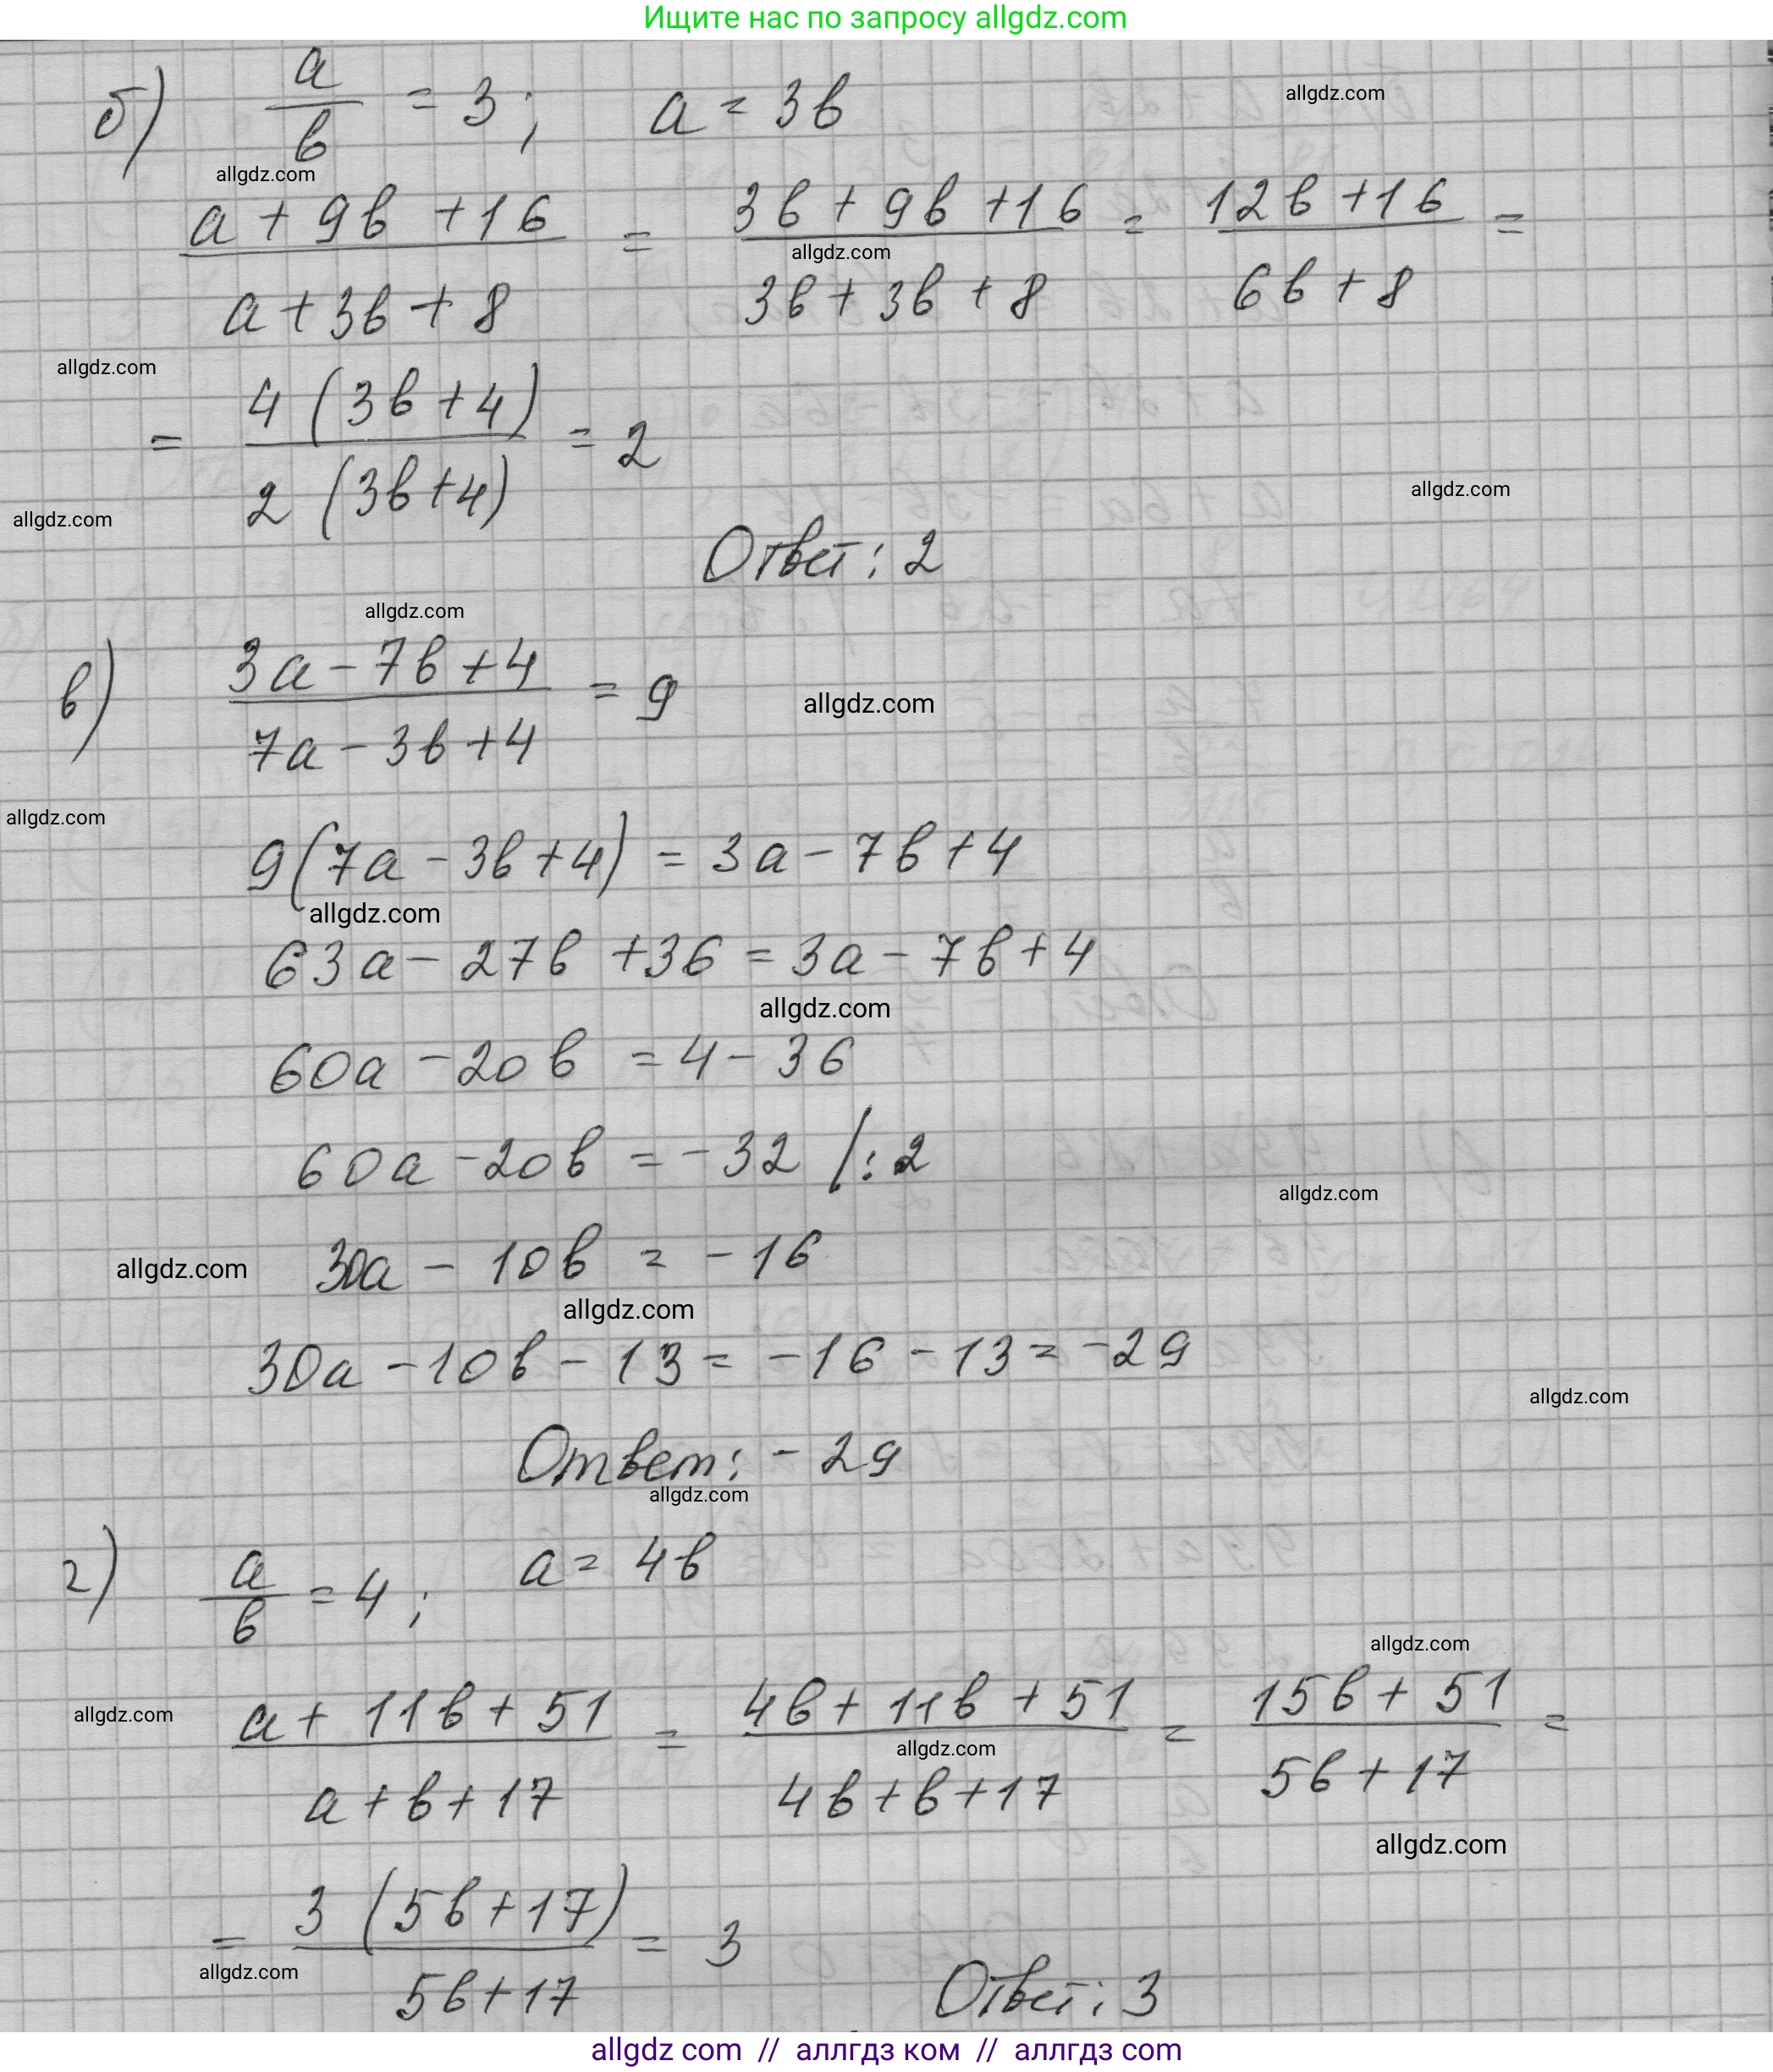 Ищите нас по запросу allgdz.com
б) a/b = 3; a = 3b
allgdz.com
allgdz.com
(a + 9b + 16)/(a + 3b + 8) = (3b + 9b + 16)/(3b + 3b + 8) = (12b + 16)/(6b + 8) =
allgdz.com
allgdz.com
= 4(3b+4)/2(3b+4) = 2
allgdz.com
allgdz.com
Ответ: 2
allgdz.com
в) (3a - 7b + 4)/(7a - 3b + 4) = 9
allgdz.com
allgdz.com
9(7a - 3b + 4) = 3a - 7b + 4
allgdz.com
63a - 27b + 36 = 3a - 7b + 4
allgdz.com
60a - 20b = 4 - 36
60a - 20b = -32 /:2
allgdz.com
30a - 10b = -16
allgdz.com
allgdz.com
30a - 10b - 13 = -16 - 13 = -29
allgdz.com
Ответ: -29
allgdz.com
г) a/b = 4; a = 4b
allgdz.com
allgdz.com
(a + 11b + 51)/(a + b + 17) = (4b + 11b + 51)/(4b + b + 17) = (15b + 51)/(5b + 17) =
allgdz.com
allgdz.com
= 3(5b+17)/(5b+17) = 3
allgdz.com
Ответ: 3
allgdz com // аллгдз ком // аллгдз com